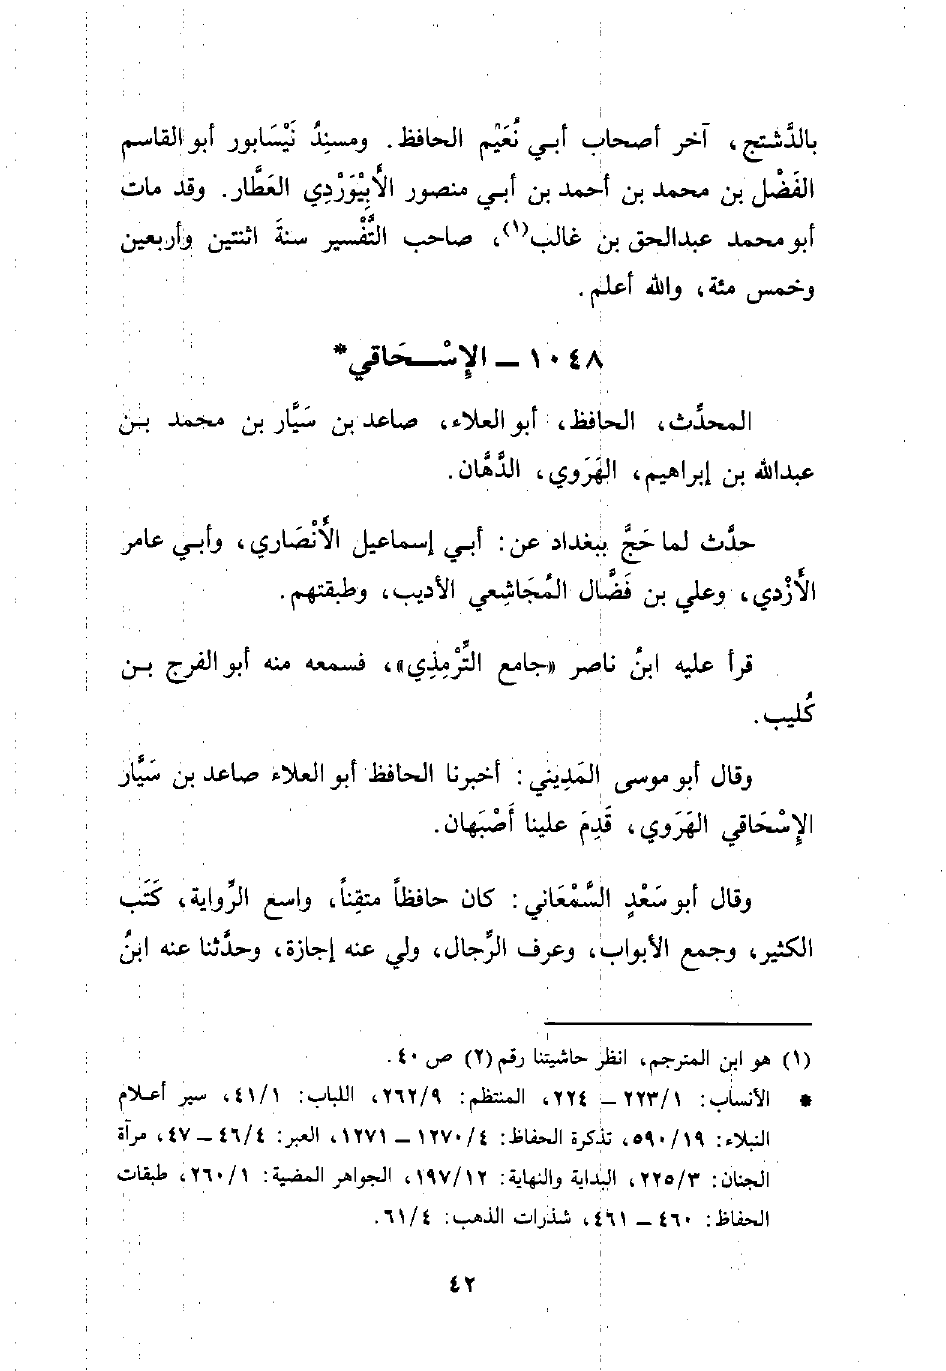 بالدَّشتج، آخر أصحاب أبي نُعَيْم الحافظ. ومسنِدُ نَيْسَابور أبو القاسم
الفَضْل بن محمد بن أحمد بن أبي منصور الأَبِيْوَرْدِي العَطَّار. وقد مات
أبو محمد عبدالحق بن غالب(١)، صاحب التَّفْسير سنةَ اثنتين وأربعين
وخمس مئة، والله أعلم.
١٠٤٨ ــ الإِسْـحَاقي*
المحدِّث، الحافظ، أبو العلاء، صاعد بن سَيَّار بن محمد بـن
عبدالله بن إبراهيم، الهَرَوي، الدَّهَّان.
حدَّث لما حَجَّ ببغداد عن: أبي إسماعيل الأَنْصَاري، وأبي عامر
الأَزْدي، وعلي بن فَضَّال المُجَاشِعي الأديب، وطبقتهم.
قرأ عليه ابنُ ناصر «جامع التِّرْمِذِي»، فسمعه منه أبو الفرج بـن
كُليب.
وقال أبو موسى المَدِيني: أخبرنا الحافظ أبو العلاء صاعد بن سَيَّار
الإِسْحَاقي الهَرَوي، قَدِمَ علينا أَصْبَهان.
وقال أبو سَعْدٍ السَّمْعَاني: كان حافظاً متقِناً، واسع الرِّواية، كَتَب
الكثير، وجمع الأبواب، وعرف الرِّجال، ولي عنه إجازة، وحدَّثنا عنه ابنُ
(١) هو ابن المترجم، انظر حاشيتنا رقم (٢) ص ٤٠.
* الأنساب: ٢٢٣/١ ــ ٢٢٤، المنتظم: ٢٦٢/٩، اللباب: ٤١/١، سير أعـلام
النبلاء: ٥٩٠/١٩، تذكرة الحفاظ: ١٢٧٠/٤ ــ ١٢٧١، العبر: ٤٦/٤ ــ ٤٧، مرآة
الجنان: ٢٢٥/٣، البداية والنهاية: ١٩٧/١٢، الجواهر المضية: ٢٦٠/١، طبقات
الحفاظ: ٤٦٠ ــ ٤٦١، شذرات الذهب: ٦١/٤.
٤٢